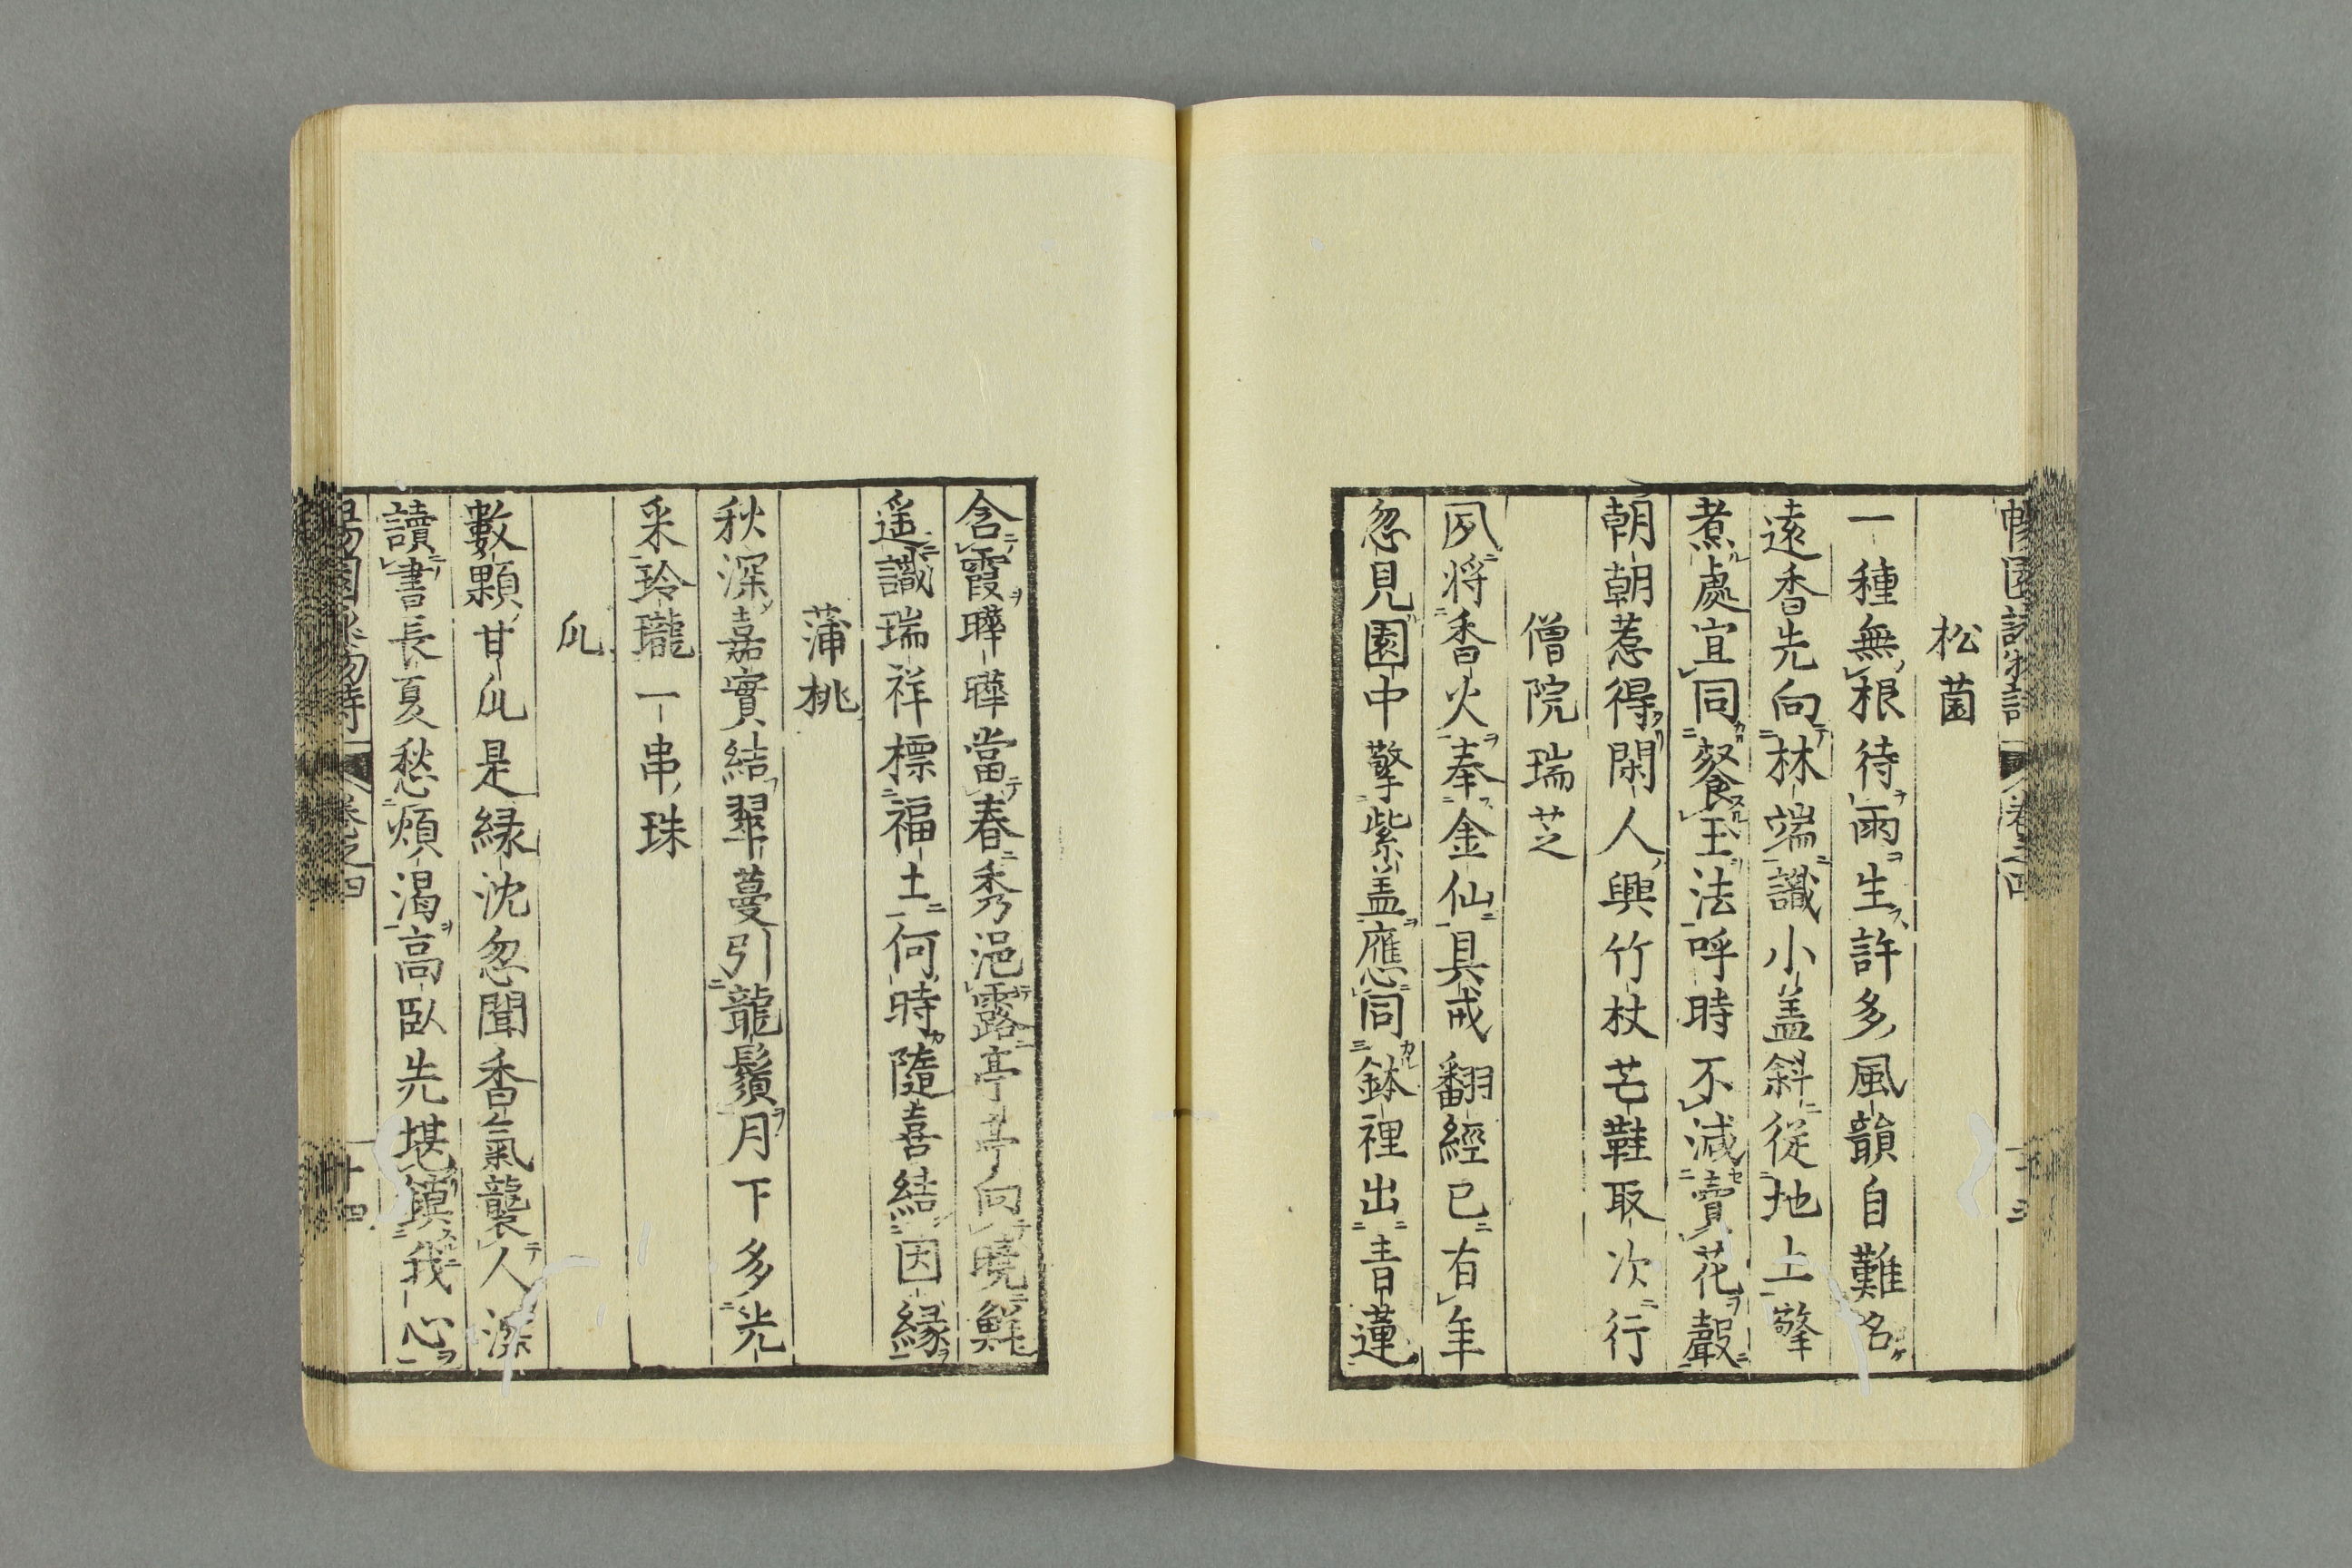 松菌
一種無根待雨生許多風韻自難名
遠香先向林端識小盖斜從地上擎
煮處宜同餐玉法呼時不減賣花聲
朝朝惹得閑人興竹杖芒鞋取次行
僧院瑞芝
夙將香火奉金仙具戒翻經已有年
忽見園中擎紫盖應同鉢裡出青蓮
含霞曄曄當春秀浥露亭亭向曉鮮
遥識瑞祥標福土何時隨喜結因縁
蒲桃
秋深嘉實結翠蔓引龍鬚月下多光
采玲瓏一串珠
瓜
數顆甘瓜是緑沈忽聞香氣襲人深
讀書長夏愁煩渴高臥先堪鎮我心
卷之四
十四